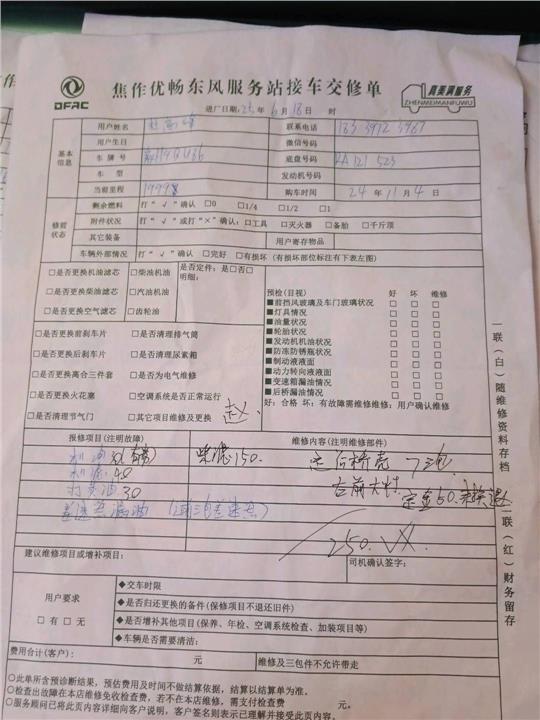 DFAC
焦作优畅东风服务站接车交修单
真美满服务
ZHENMEIMANFUWU
进厂日期:25年6月18日 时
基本信息
用户姓名 联系电话
用户生日 微信号码
车牌号 底盘号码 RA121523
车型 发动机号码
当前里程 19998 购车时间 24年11月4日
修前状态
剩余燃料 打“√”确认 □0 □1/4 □1/2 □1
附件状况 打“√”或打“×”确认:□工具 □灭火器 □备胎 □千斤顶
其它装备 用户寄存物品
车辆外部情况 打“√”确认 □完好 □有损坏(有损坏部位标注有下表左图)
□是否更换机油滤芯 □柴油机油 是否定件:是□否□
明细:
□是否更换柴油滤芯 □汽油机油
□是否更换空气滤芯 □齿轮油
□是否更换前刹车片 □是否清理排气筒
□是否更换后刹车片 □是否清理尿素箱
□是否更换离合三件套 □是否为电气维修
□是否更换火花塞 □空调系统是否正常运行
□是否清理节气门 □其它项目维修及更换 赵
预检(目视) 好 坏 维修
■前挡风玻璃及车门玻璃状况 □ □ □
■灯具情况 □ □ □
■油量状况 □ □ □
■轮胎状况 □ □ □
■发动机机油状况 □ □ □
■防冻防锈瓶状况 □ □ □
■制动液液面 □ □ □
■动力转向液液面 □ □ □
■变速箱漏油情况 □ □ □
■后桥漏油情况 □ □ □
好:合格 坏:有故障需维修维修:用户确认维修
报修项目(注明故障) 维修内容(注明维修部件)
机油 150. 定后桥壳 三包.
机滤 40 右前大灯 定金50.
30
250.
建议维修项目或增补项目: 司机确认签字:
用户要求
□有□无
◆交车时限
◆是否归还更换的备件(保修项目不退还旧件)
◆是否增补其他项目(保养、年检、空调系统检查、加装项目等)
◆车辆是否需要清洁:
费用合计(客户): 元 维修及三包件不允许带走
○此单所含预诊断结果,预估费用及时间不做结算依据,结算以结算单为准。
○检查出故障在本店维修免收检查费,若不在本店维修,需支付检查费 元。
○服务顾问已将此页内容详细向客户说明,客户签名则表示已理解并接受此页内容。
一联(白)随维修资料存档
二联(红)财务留存